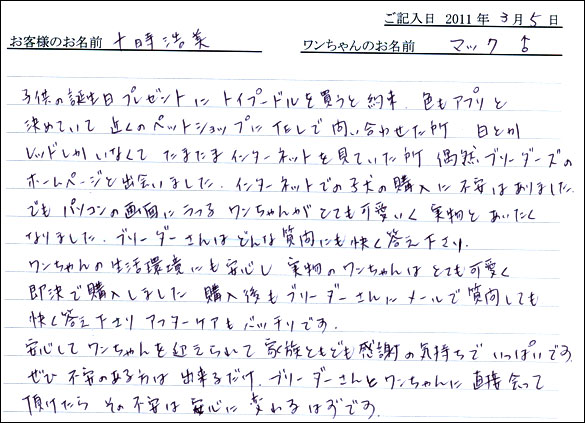 ご記入日 2011年 3月 5日
お客様のお名前 十時浩美 ワンちゃんのお名前 マック ♂
子供の誕生日プレゼントに トイプードルを買うと約束. 色もアプリと
決めていて 近くのペットショップに TELで問い合わせた所 白とか
レッドしかいなくて たまたまインターネットを見ていた所 偶然ブリーダーズの
ホームページと出会いました. インターネットでの子犬の購入に不安はありました
でも パソコンの画面にうつる ワンちゃんがとても可愛いく 実物とあいたく
なりました. ブリーダーさんはどんな質問にも快く答え下さり.
ワンちゃんの生活環境にも安心し 実物のワンちゃんは とても可愛く
即決で購入しました 購入後もブリーダーさんにメールで質問しても
快く答え下さり アフターケアもバッチリです.
安心してワンちゃんを迎えられて 家族ともども感謝の気持ちで いっぱいです.
ぜひ 不安のある方は 出来るだけ. ブリーダーさんとワンちゃんに 直接会って
頂けたら その不安は 安心に 変わるはずです.